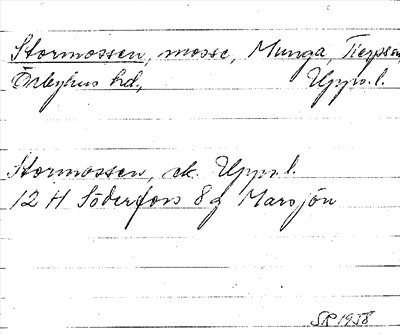 Stormossen, mosse, Munga, Tierps sn,
Örbyhus hd, Upps. l.
Stormossen, ek. Upps. l.
12 H Söderfors 8 g Marsjön
SR 1958